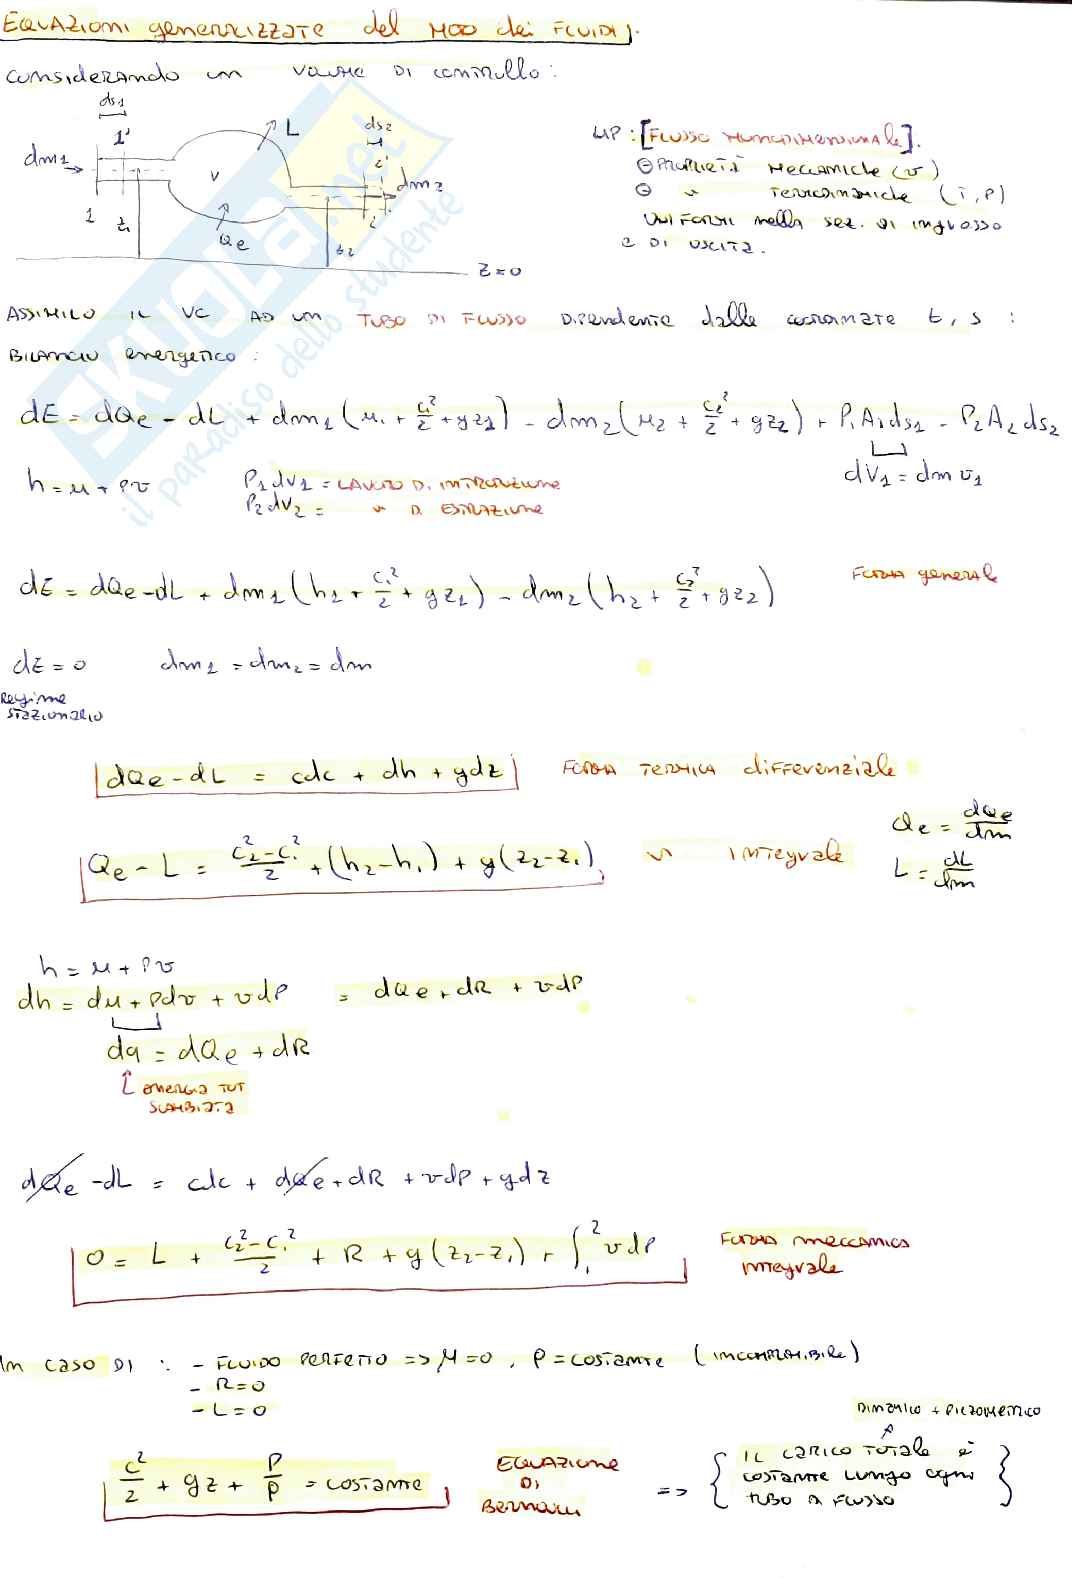 EQUAZIONI generalizzate del MOTO dei FLUIDI.
considerando un VOLUME DI controllo:
ds1
1'
L
ds2
dm1
V
2'
dm2
1
z1
Qe
z2
2
z=0
HP: [FLUSSO MONODIMENSIONALE].
PROPRIETÀ MECCANICHE (v)
" TERMODINAMICHE (T, P)
UNIFORMI nella sez. DI INGRESSO
e DI USCITA.
ASSIMILO IL VC AD UN TUBO DI FLUSSO DIPENDENTE dalle coordinate t, s:
BILANCIO energetico:
dE = dQe - dL + dm1(u1 + c1²/2 + gz1) - dm2(u2 + c2²/2 + gz2) + P1A1ds1 - P2A2ds2
dV1 = dm v1
h = u + Pv
P1dV1 = LAVORO DI INTRODUZIONE
P2dV2 = " DI ESTRAZIONE
dE = dQe - dL + dm1(h1 + c1²/2 + gz1) - dm2(h2 + c2²/2 + gz2) FORMA generale
dE = 0 dm1 = dm2 = dm
Regime
STAZIONARIO
dQe - dL = cdc + dh + gdz FORMA TERMICA differenziale
Qe - L = (c2² - c1²)/2 + (h2 - h1) + g(z2 - z1) " INTegrale
Qe = dQe/dm
L = dL/dm
h = u + Pv
dh = du + Pdv + vdP = dQe + dR + vdP
dq = dQe + dR
energia TOT
SCAMBIATA
dQe - dL = cdc + dQe + dR + vdP + gdz
0 = L + (c2² - c1²)/2 + R + g(z2 - z1) + ∫₁² vdP FORMA meccanica
INTegrale
In CASO DI: - FLUIDO PERFETTO => μ=0, ρ=COSTANTE (INCOMPRIMIBILE)
- R=0
- L=0
DINAMICO + PIEZOMETRICO
c²/2 + gz + P/ρ = COSTANTE
EQUAZIONE
DI
Bernoulli
=> { IL CARICO TOTALE è
COSTANTE LUNGO ogni
TUBO DI FLUSSO }
SKUOLA.net
il paradiso dello studente